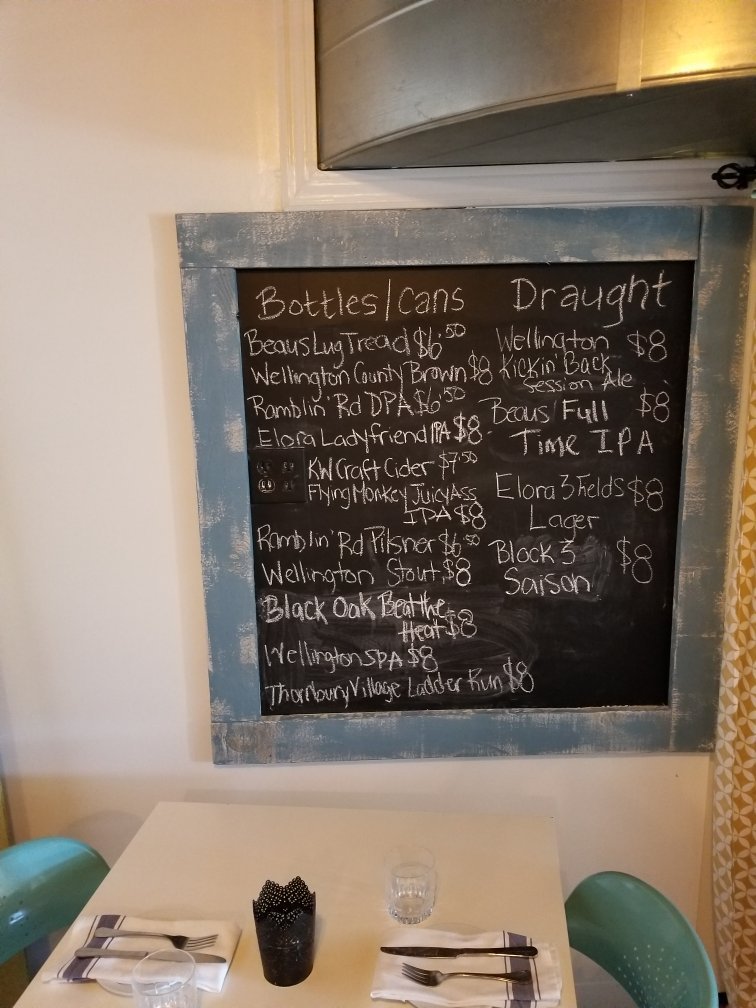 Bottles/cans
Beaus Lug Tread $6.50
Wellington County Brown $8
Ramblin' Rd DPA $6.50
Elora Ladyfriend IPA $8
KW Craft Cider $7.50
Flying Monkey Juicy Ass
IPA $8
Ramblin' Rd Pilsner $6.50
Wellington Stout $8
Black Oak Beat the
Heat $8
Wellington SPA $8
Thornbury Village Ladder Run $8
Draught
Wellington $8
Kickin' Back
Session Ale
Beaus Full $8
Time IPA
Elora 3 Fields $8
Lager
Block 3 $8
Saison